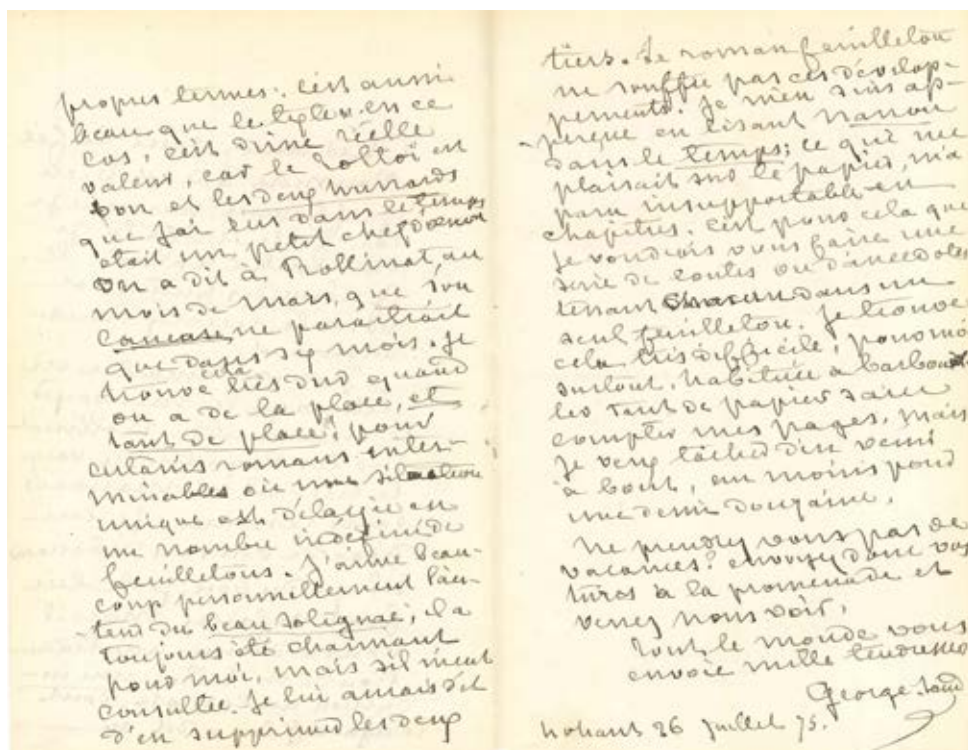 propres termes. C'est aussi
beau que le texte. en ce
cas, c'est d'une réelle
valeur, car le Tolstoï est
bon et les deux hussards
que j'ai lus dans le temps
était un petit chef d'œuvre
on a dit à Rollinat, au
mois de mars, que son
Caucase ne paraîtrait
que dans six mois. Je
trouve cela très dur quand
on a de la place, et
tant de place, pour
certains romans inter-
minables où une situation
unique est délayée en
un nombre indéfini de
feuilletons. J'aime beau-
coup personnellement l'au-
teur du beau Solignac, il a
toujours été charmant
pour moi, mais s'il m'eut
consultée, je lui aurais dit
d'en supprimer les deux
tiers. Le roman feuilleton
ne souffre pas ces dévelop-
pements. Je m'en suis ap-
perçue en lisant Nanon
dans le temps; ce qui me
plaisait sur le papier, m'a
paru insupportable en
chapitres. C'est pour cela que
je voudrais vous faire une
série de contes ou d'anecdotes
tenant chacun dans un
seul feuilleton. Je trouve
cela très difficile, pour moi
surtout, habituée à barbouil-
ler tant de papier sans
compter mes pages, mais
je veux tâcher d'en venir
à bout, au moins pour
une demi douzaine.
Ne prendrez vous pas de
vacances? envoyez donc vos
à la promenade et
venez nous voir.
Tout le monde vous
envoie mille tendresses
George Sand
Nohant 26 Juillet 75.